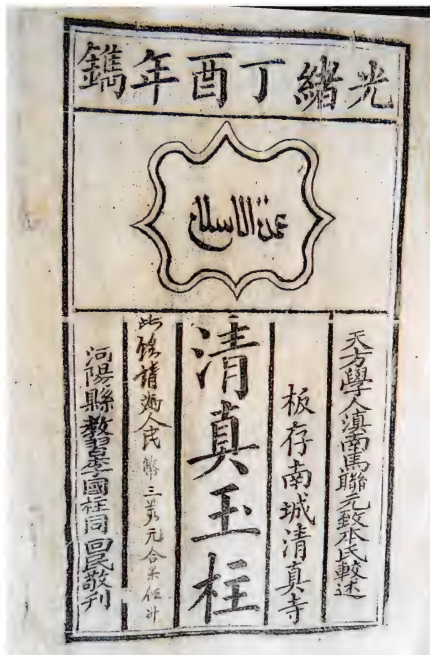 光緒丁酉年鐫
عمدة الاسلام
天方學人滇南馬聯元致本氏較述
板存南城清真寺
清真玉柱
人民幣三萬元合米任升
河陽縣教習李國柱同回民敬刊